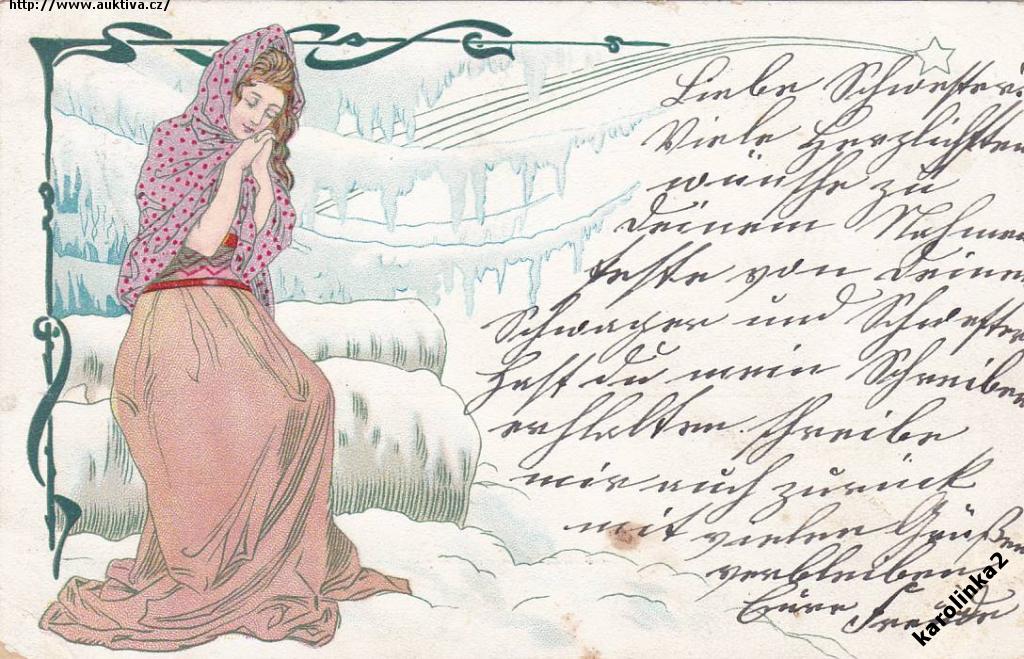 http://www.auktiva.cz/
Liebe Schwester!
Viele Herzlichsten
wünsche zu
Deinem Nahmen
feste von Deinen
Schwager und Schwester
Hast du mein Schreiben
erhalten schreibe
mir auch zurück
mit vielen Grüßen
verbleiben
Eure
karolinka2